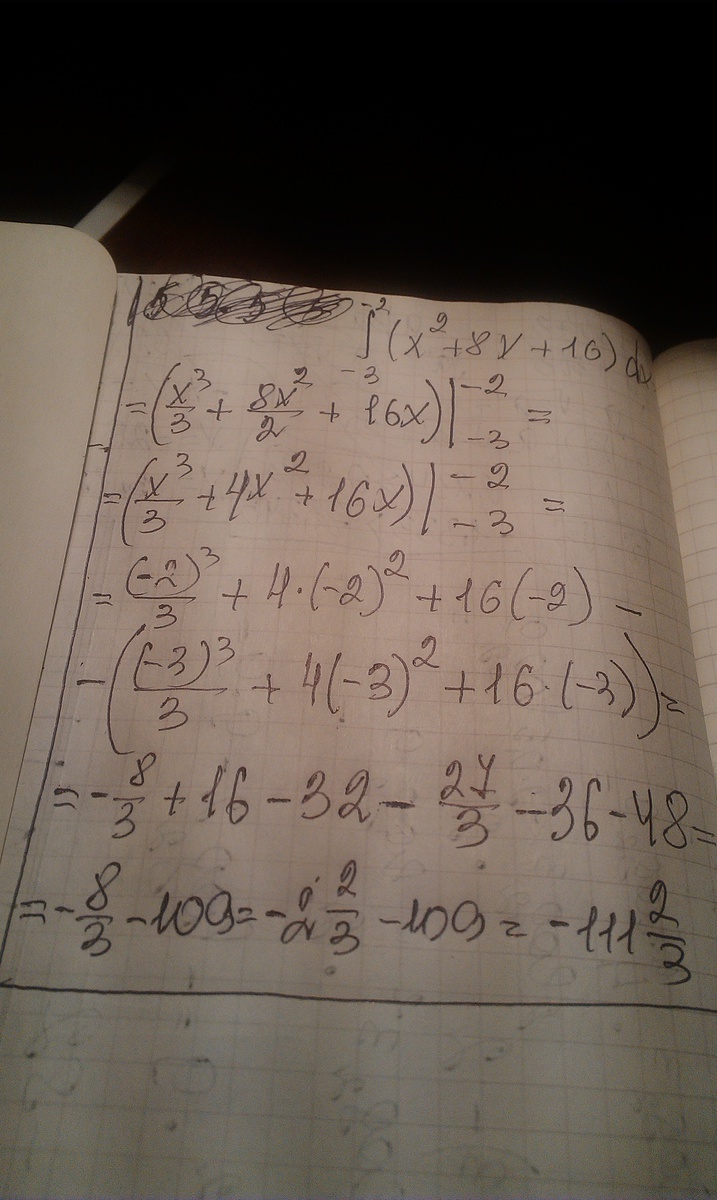 ∫₋₃⁻² (x² + 8x + 16) dx
= (x³/3 + 8x²/2 + 16x)|₋₃⁻² =
= (x³/3 + 4x² + 16x)|₋₃⁻² =
= (-2)³/3 + 4·(-2)² + 16(-2) -
- ((-3)³/3 + 4(-3)² + 16·(-3)) =
= -8/3 + 16 - 32 - 27/3 - 36 - 48 =
= -8/3 - 109 = -2 2/3 - 109 = -111 2/3